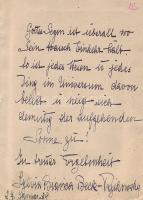 Gottes Segen ist überall wo
Sein Hauch Einkehr hält
So ist jedes Atom u jedes
Ding im Universum davon
belebt u neigt sich
demütig der aufgehenden
Sonne zu!
In treuer Ergebenheit
Bianca Beck-